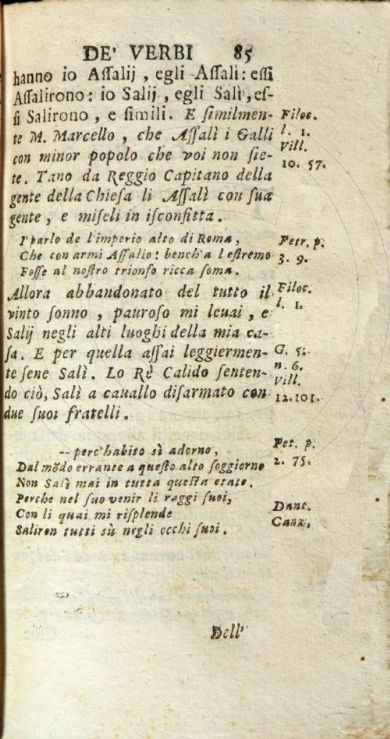 DE' VERBI 85
hanno io Aſſalij , egli Aſſali : eſſi
Aſſalirono : io Salij , egli Salì , eſ-
ſi Salirono , e ſimili. E ſimilmen- Filoc.
te M. Marcello , che Aſſalì i Galli l. 1.
con minor popolo che voi non ſie- Vill.
te. Tano da Reggio Capitano della 10. 57.
gente della Chieſa li Aſſalì con ſua
gente , e miſeli in iſconfitta .
I' parlo de l'imperio alto di Roma, Petr. p.
Che con armi Aſſalio : bench'a l eſtremo 3. 9.
Foſſe al noſtro trionfo ricca ſoma.
Allora abbandonato del tutto il Filoc.
vinto ſonno , pauroſo mi leuai , e l. 1.
Salij negli alti luoghi della mia ca-
ſa. E per quella aſſai leggiermen- G. 5.
te ſene Salì. Lo Rè Calido ſenten- n. 6.
do ciò, Salì a cauallo diſarmato con Vill.
due ſuoi fratelli . 12. 101.
-- perc'habito sì adorno, Pet. p.
Dal mõdo errante a queſto alto ſoggiorno 2. 75.
Non Salì mai in tutta queſta etate.
Perche nel ſuo venir li raggi ſuoi,
Con li quai mi riſplende Dant.
Saliron tutti sù negli occhi ſuoi . Canz.
Dell'